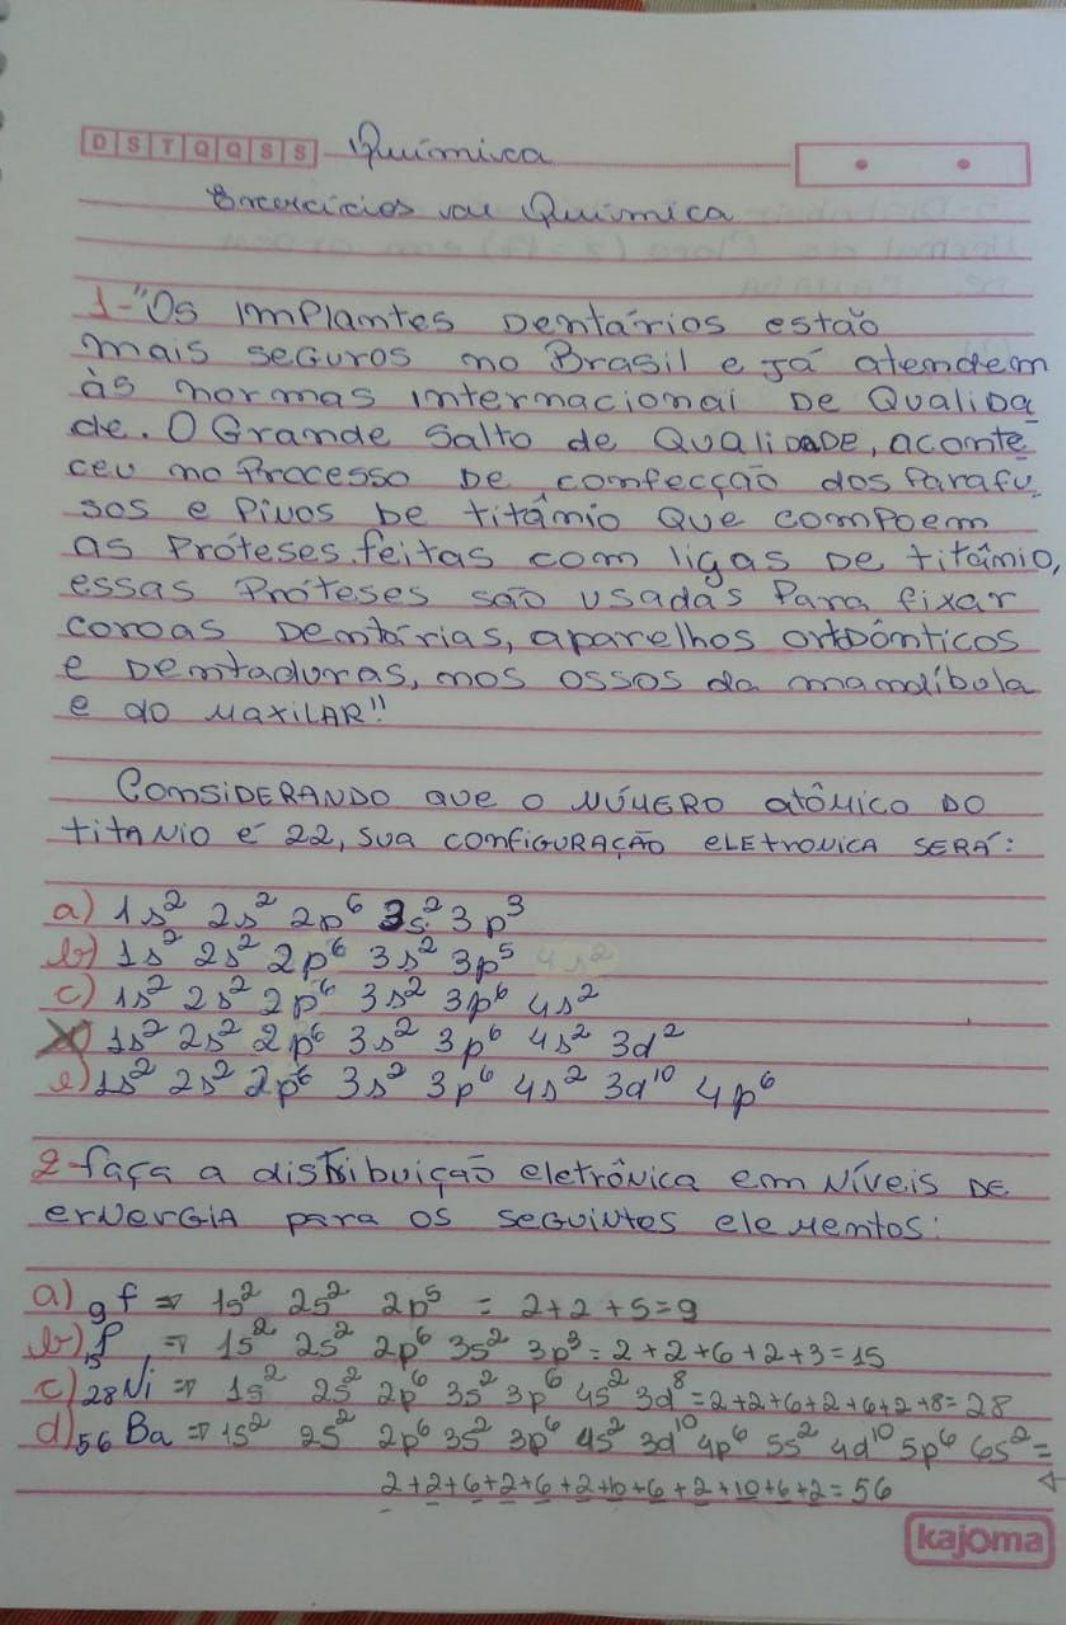 D S T Q Q S S Química
Exercícios de Química
1-"Os Implantes Dentários estão
mais seguros no Brasil e já atendem
às normas internacionai De Qualida
de. O Grande Salto de QualidaDE, aconte
ceu no Processo De confecção dos Parafu
sos e Pivos De titânio Que compoem
as Próteses. feitas com ligas De titânio,
essas Próteses são usadas Para fixar
coroas Dentárias, aparelhos ortodônticos
e Dentaduras, nos ossos da mandíbula
e do MaxiLAR"
ConsiDERANDO que o NÚMERO atôMico DO
titANio é 22, sua confiGURAÇÃO eLEtroNICA SERÁ:
a) 1s² 2s² 2p⁶ 3s² 3p³
b) 1s² 2s² 2p⁶ 3s² 3p⁵ 4s²
c) 1s² 2s² 2p⁶ 3s² 3p⁶ 4s²
d) 1s² 2s² 2p⁶ 3s² 3p⁶ 4s² 3d²
e) 1s² 2s² 2p⁶ 3s² 3p⁶ 4s² 3d¹⁰ 4p⁶
2-faça a distribuição eletrôNica em Níveis DE
erNerGIA para os seguiNtes eleMentos:
a) ₉f ⇒ 1s² 2s² 2p⁵ = 2+2+5=9
b) ₁₅P ⇒ 1s² 2s² 2p⁶ 3s² 3p³ = 2+2+6+2+3=15
c) ₂₈Ni ⇒ 1s² 2s² 2p⁶ 3s² 3p⁶ 4s² 3d⁸ =2+2+6+2+6+2+8=28
d) ₅₆Ba ⇒ 1s² 2s² 2p⁶ 3s² 3p⁶ 4s² 3d¹⁰ 4p⁶ 5s² 4d¹⁰ 5p⁶ 6s² =
2+2+6+2+6+2+10+6+2+10+6+2=56
kajoma